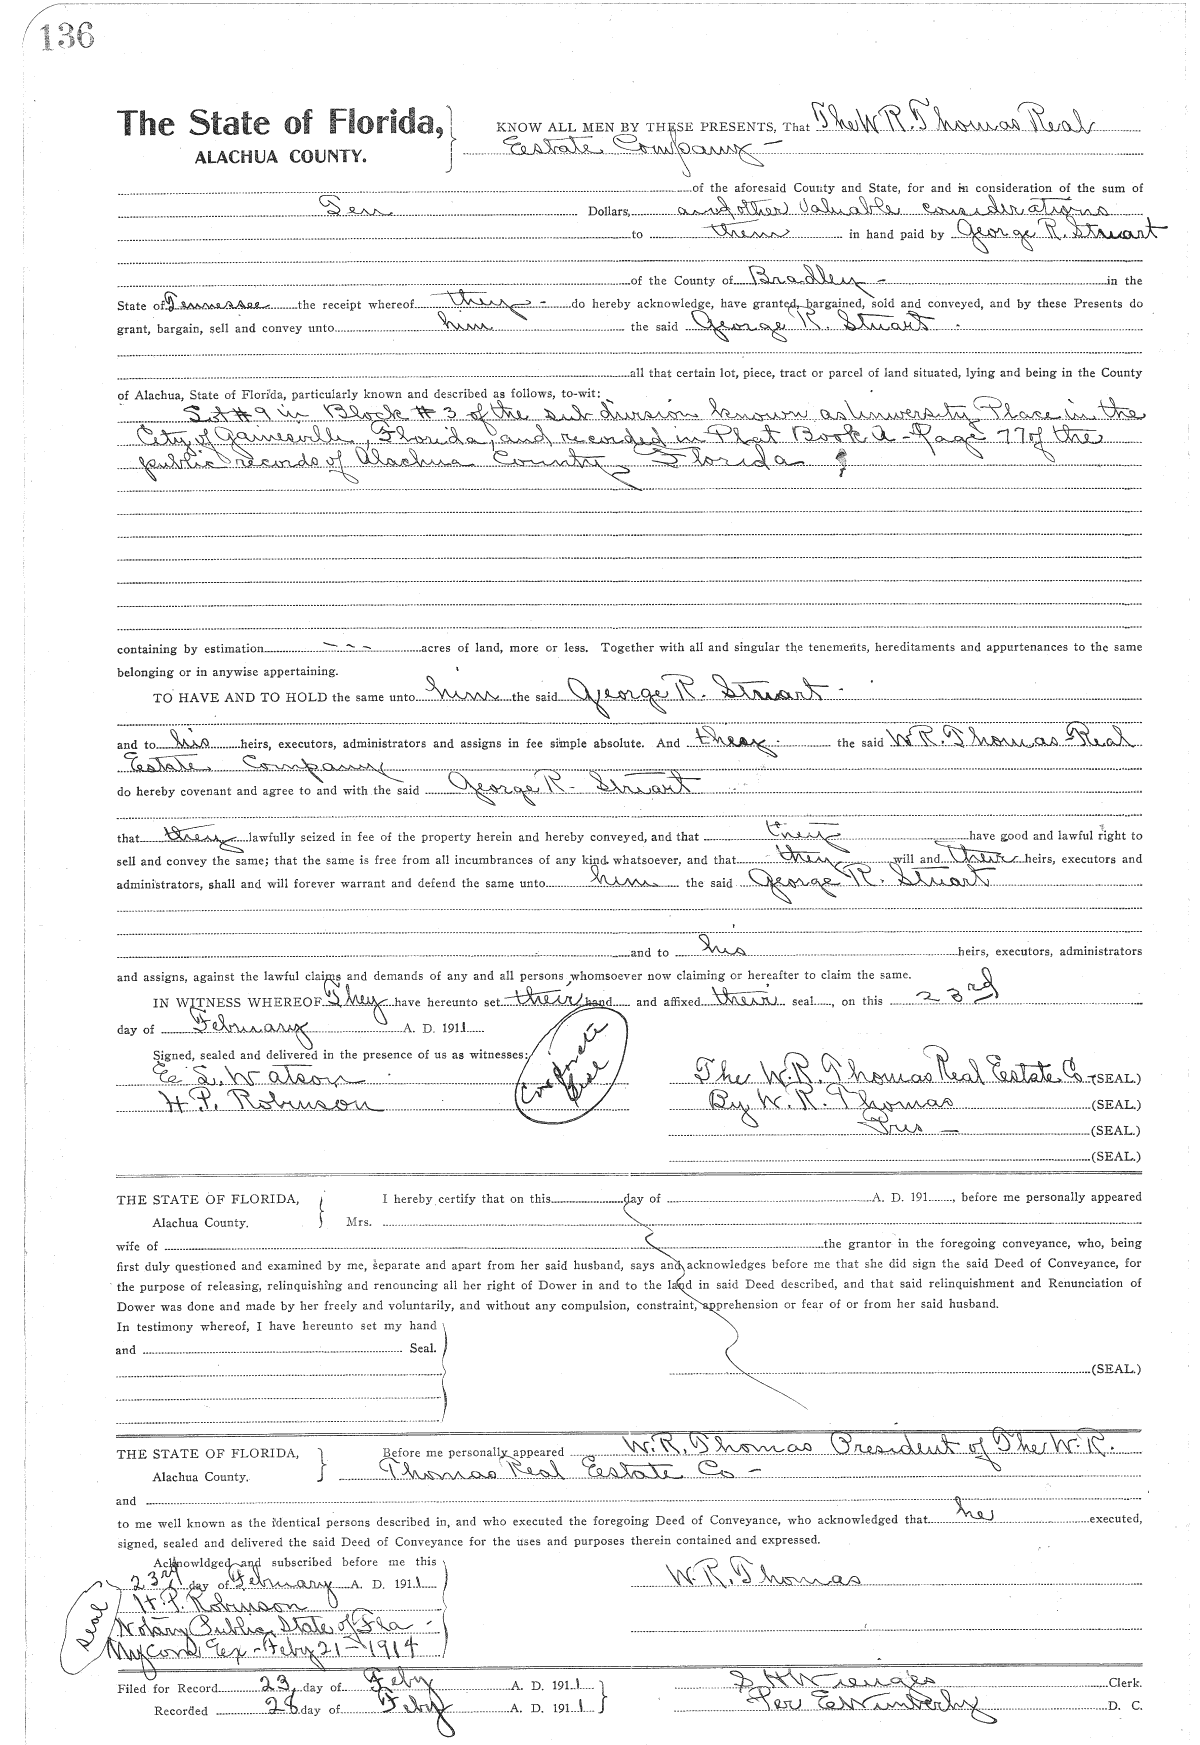 136
The State of Florida,
ALACHUA COUNTY.
KNOW ALL MEN BY THESE PRESENTS, That The W R. Thomas Real
Estate Company -
of the aforesaid County and State, for and in consideration of the sum of
Ten Dollars, and other valuable considerations
to them in hand paid by George R. Stuart
of the County of Bradley - in the
State of Tennessee the receipt whereof they - do hereby acknowledge, have granted, bargained, sold and conveyed, and by these Presents do
grant, bargain, sell and convey unto him the said George R. Stuart
all that certain lot, piece, tract or parcel of land situated, lying and being in the County
of Alachua, State of Florida, particularly known and described as follows, to-wit:
Lot #9 in Block #3 of the sub division known as University Place in the
City of Gainesville, Florida, and recorded in Plat Book A - Page 77 of the
public records of Alachua County Florida
containing by estimation - - - acres of land, more or less. Together with all and singular the tenements, hereditaments and appurtenances to the same
belonging or in anywise appertaining.
TO HAVE AND TO HOLD the same unto him the said George R. Stuart -
and to his heirs, executors, administrators and assigns in fee simple absolute. And they the said W R. Thomas Real
Estate Company
do hereby covenant and agree to and with the said George R - Stuart
that they lawfully seized in fee of the property herein and hereby conveyed, and that they have good and lawful right to
sell and convey the same; that the same is free from all incumbrances of any kind whatsoever, and that they will and their heirs, executors and
administrators, shall and will forever warrant and defend the same unto him the said George R. Stuart
and to his heirs, executors, administrators
and assigns, against the lawful claims and demands of any and all persons whomsoever now claiming or hereafter to claim the same.
IN WITNESS WHEREOF They have hereunto set their hand and affixed their seal, on this 23rd
day of February A. D. 1911
Signed, sealed and delivered in the presence of us as witnesses:
E. L. Watson
H. P. Robinson
Corporate Seal
The W. R. Thomas Real Estate Co - (SEAL)
By W. R. Thomas (SEAL)
Pres - (SEAL)
(SEAL)
THE STATE OF FLORIDA,
Alachua County.
I hereby certify that on this day of A. D. 191, before me personally appeared
Mrs.
wife of the grantor in the foregoing conveyance, who, being
first duly questioned and examined by me, separate and apart from her said husband, says and acknowledges before me that she did sign the said Deed of Conveyance, for
the purpose of releasing, relinquishing and renouncing all her right of Dower in and to the land in said Deed described, and that said relinquishment and Renunciation of
Dower was done and made by her freely and voluntarily, and without any compulsion, constraint, apprehension or fear of or from her said husband.
In testimony whereof, I have hereunto set my hand
and Seal.
(SEAL)
THE STATE OF FLORIDA,
Alachua County.
Before me personally appeared W. R. Thomas President of The W. R.
Thomas Real Estate Co -
and
to me well known as the identical persons described in, and who executed the foregoing Deed of Conveyance, who acknowledged that he executed,
signed, sealed and delivered the said Deed of Conveyance for the uses and purposes therein contained and expressed.
Acknowldged and subscribed before me this
23rd day of February A. D. 1911
H. P. Robinson
Notary Public, State of Fla -
My Com. Ex - Feby 21 - 1914
Seal
W. R. Thomas
Filed for Record 23, day of Feby A. D. 1911
Recorded 28 day of Feby A. D. 1911
S H Wienges Clerk.
Per E Wimberly D. C.